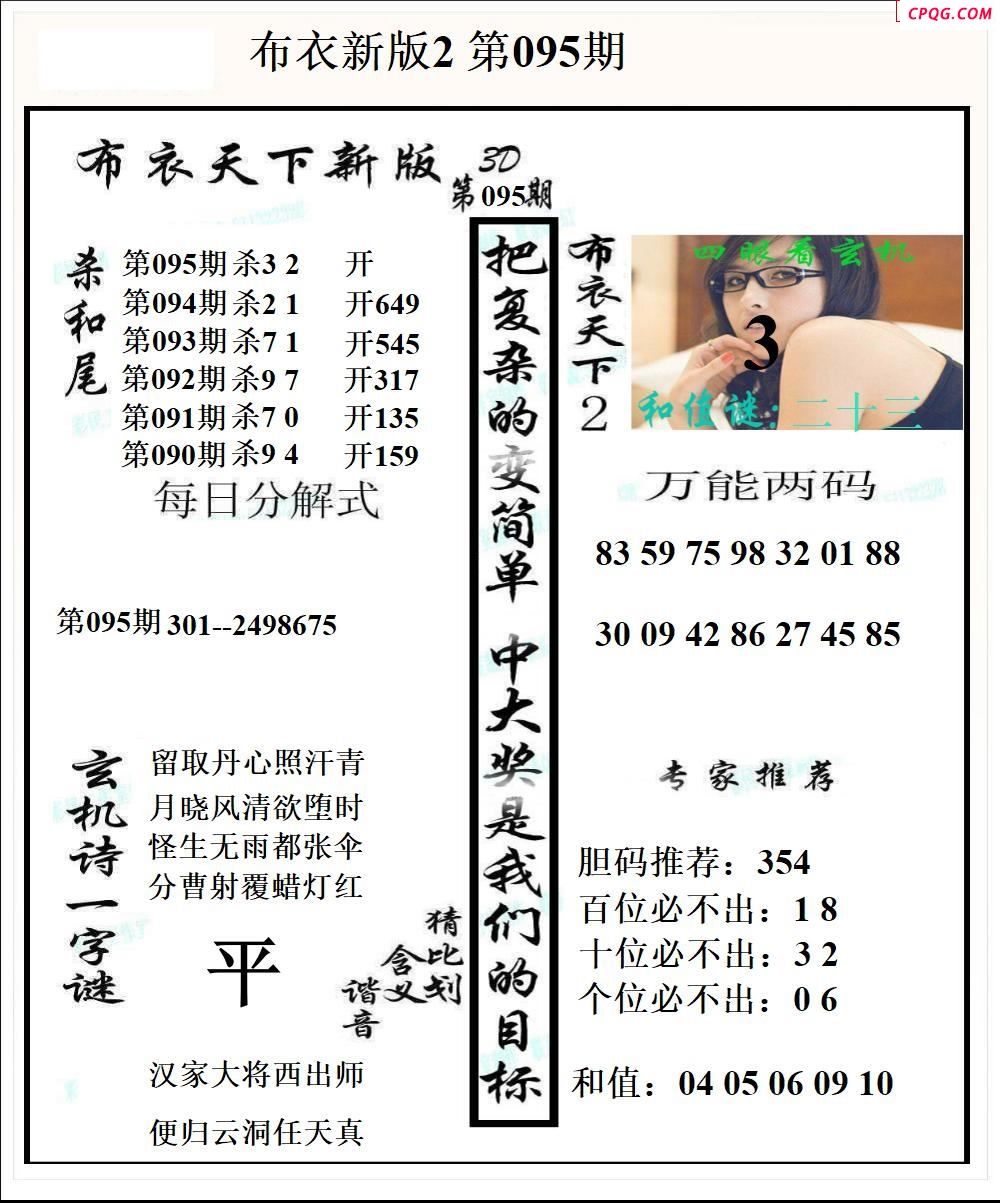 CPQG.COM
布衣新版2 第095期
布衣天下新版 3D
第095期
杀和尾
第095期 杀3 2 开
第094期 杀2 1 开649
第093期 杀7 1 开545
第092期 杀9 7 开317
第091期 杀7 0 开135
第090期 杀9 4 开159
每日分解式
第095期 301--2498675
玄机诗一字谜
留取丹心照汗青
月晓风清欲堕时
怪生无雨都张伞
分曹射覆蜡灯红
平
猜比划
含义
谐音
汉家大将西出师
便归云洞任天真
把复杂的变简单 中大奖是我们的目标
布衣天下2
四眼看玄机
3
和值谜:二十三
万能两码
83 59 75 98 32 01 88
30 09 42 86 27 45 85
专家推荐
胆码推荐：354
百位必不出：1 8
十位必不出：3 2
个位必不出：0 6
和值：04 05 06 09 10